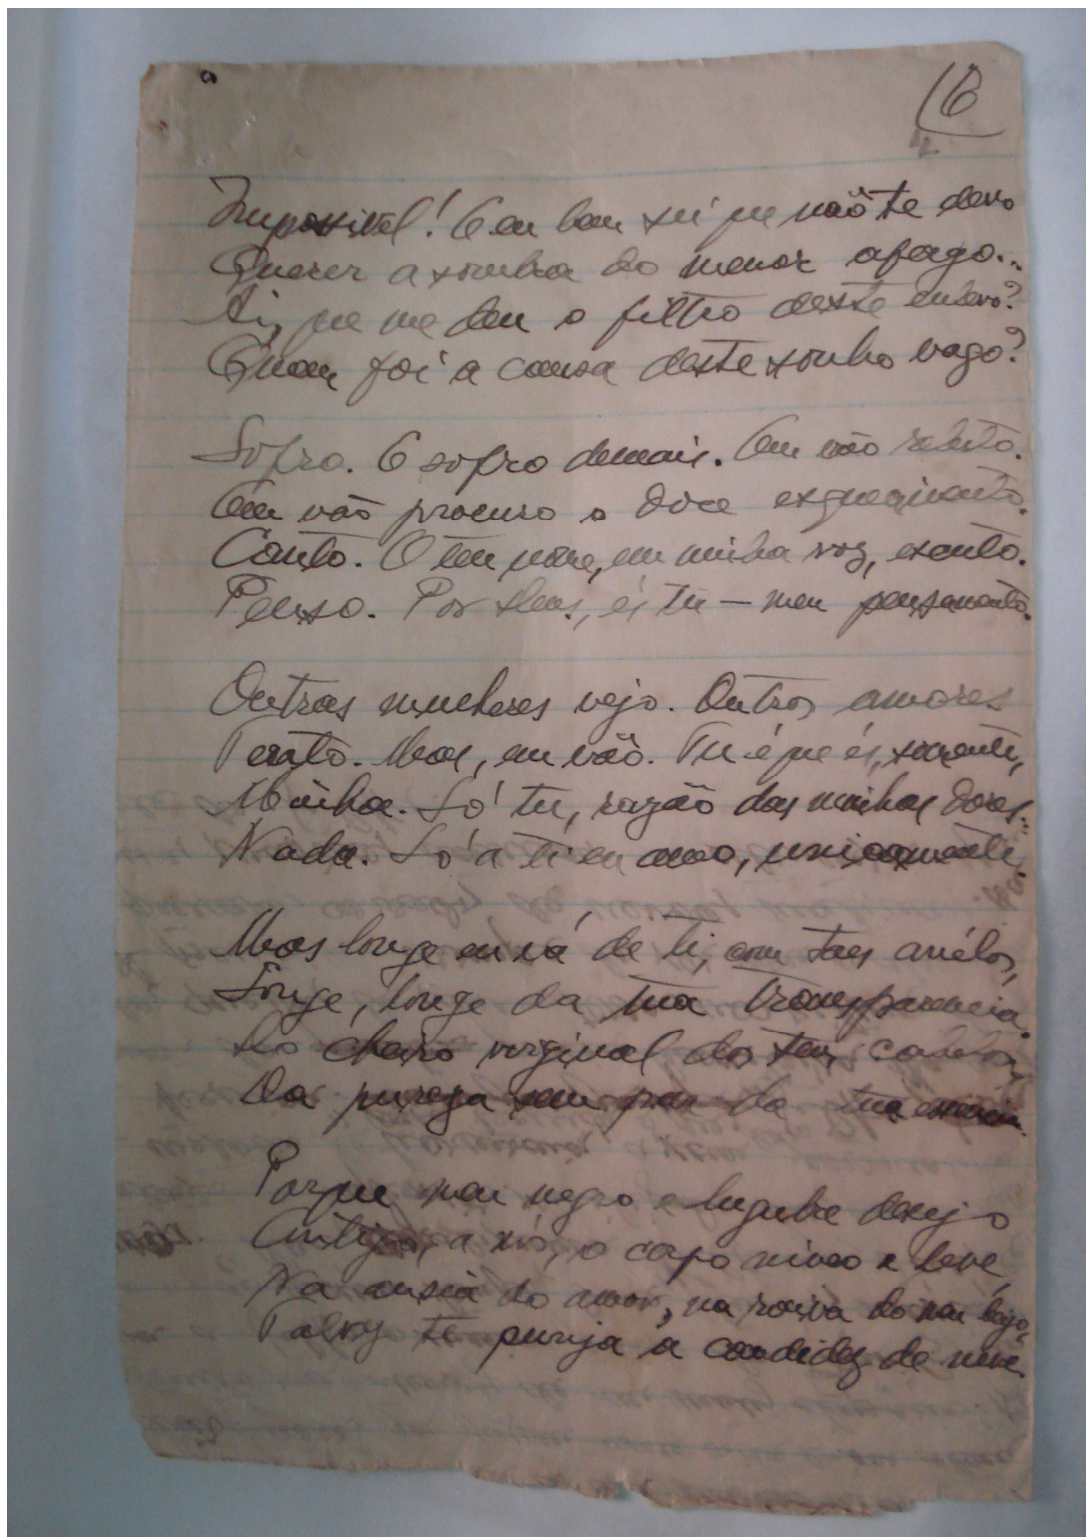 16
Impossivel! E eu bem sei que não te devo
Querer a sombra do menor afago...
Ai, que me deu o filtro deste enlevo?
Quem foi a causa deste sonho vago?
Sofro. E sofro demais. Em vão reluto.
Em vão procuro o doce esquecimento.
Canto. O teu nome, em minha voz, escuto.
Penso. Por Deus, és tu — meu pensamento.
Outras mulheres vejo. Outros amores
Tento. Mas, em vão. Tu é que és, somente,
Minha. Só tu, razão das minhas dores...
Nada. Só a ti eu amo, unicamente.
Mas longe eu vá de ti, com taes anélos,
Longe, longe da tua transparencia.
Do cheiro virginal dos teus cabelos,
Da pureza sem par da tua essencia.
Porque meu negro e lugubre desejo
a sós, o corpo niveo e leve,
Na ansia do amor, na raiva do meu beijo,
Talvez te a candidez de neve.